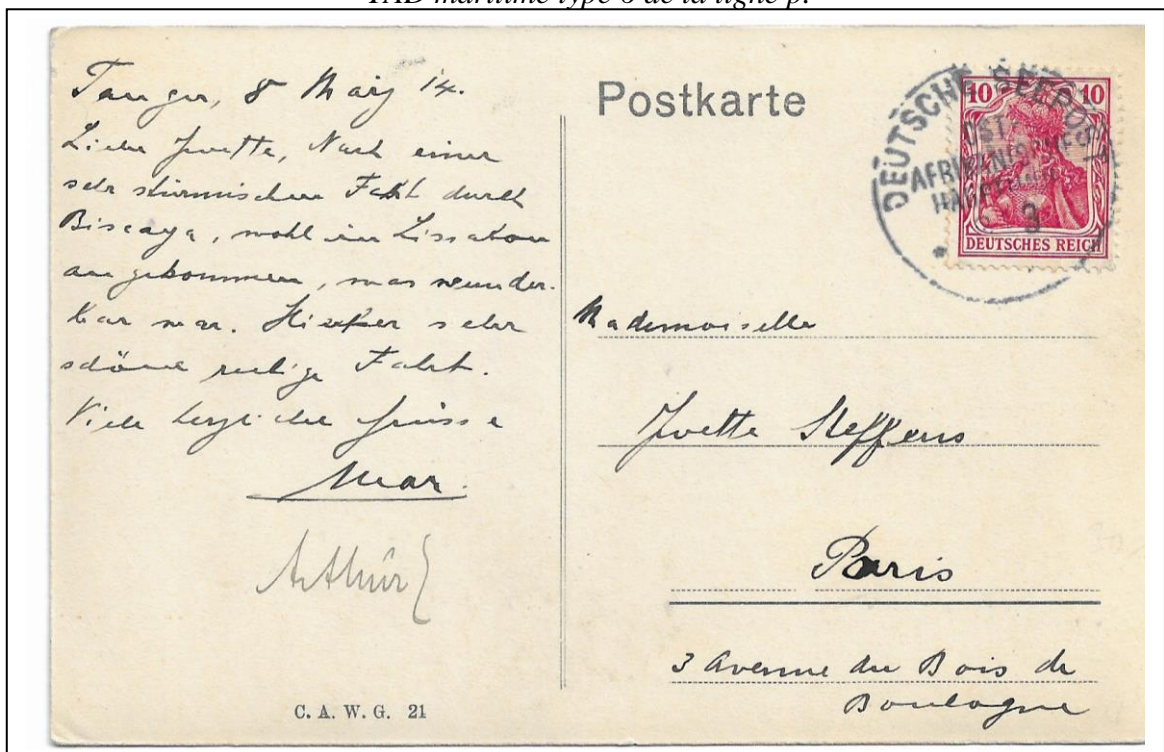 TAD maritime type 6 de la ligne β.
Tanger, 8 März 14.
Liebe Yvette, Nach einer
sehr stürmischen Fahrt durch
Biscaya, wohl in Lissabon
angekommen, was wunder-
bar war. Hierher sehr
schöne ruhige Fahrt.
Viele herzliche Grüsse
Arthur
Postkarte
DEUTSCHE SEEPOST
OST-
AFRIKANISCHE
HAUPTLINIE
3
10 10
DEUTSCHES REICH
Mademoiselle
Yvette Steffens
Paris
3 Avenue du Bois de
Boulogne
C. A. W. G. 21